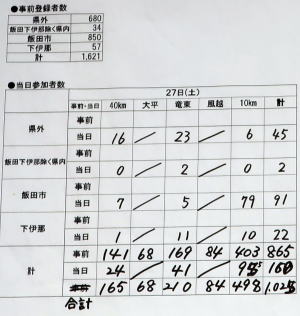 ●事前登録者数
県外 680
飯田下伊那除く県内 34
飯田市 850
下伊那 57
計 1,621
●当日参加者数
27日(土)
事前・当日 40km 大平 竜東 風越 10km 計
県外 事前
当日 16 ／ 23 ／ 6 45
飯田下伊那除く県内 事前
当日 0 ／ 2 ／ 0 2
飯田市 事前
当日 7 ／ 5 ／ 79 91
下伊那 事前
当日 1 ／ 11 ／ 10 22
計 事前 141 68 169 84 403 865
当日 24 ／ 41 ／ 95 160
165 68 210 84 498 1,025
合計